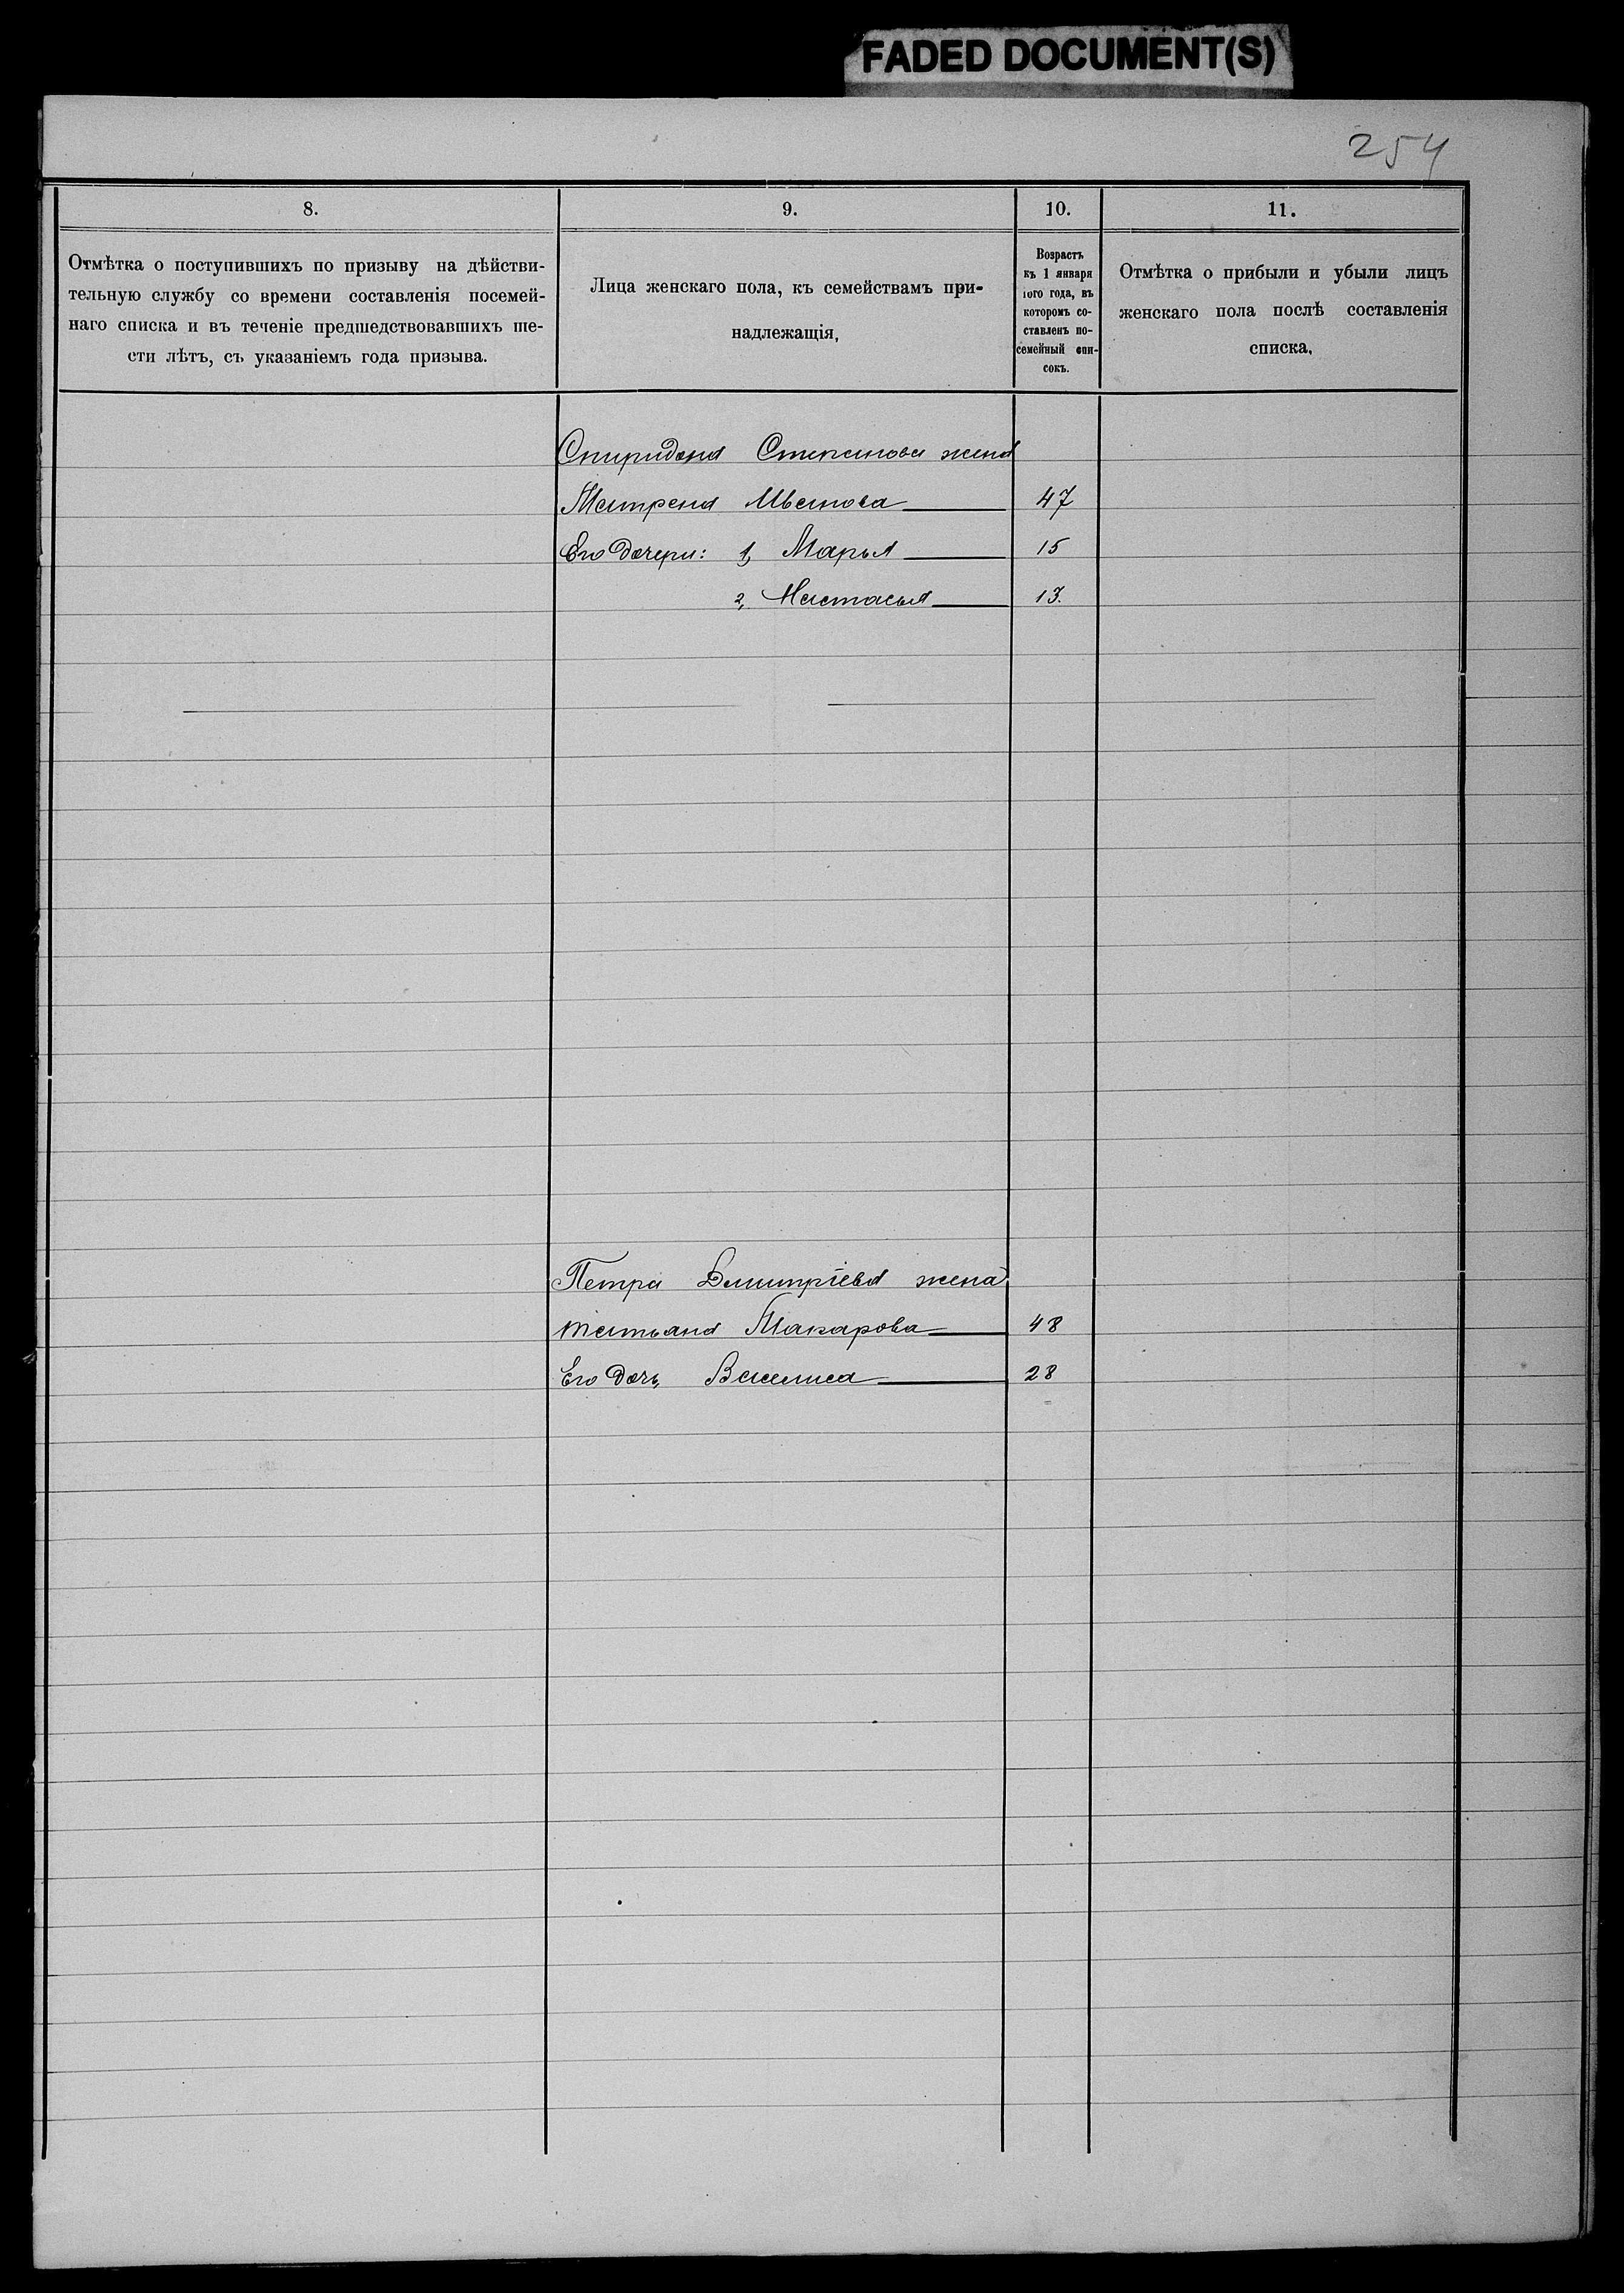 FADED DOCUMENT(S)
254
8.
9.
10.
11.
Отмѣтка о поступившихъ по призыву на дѣйстви-
тельную службу со времени составленія посемей-
наго списка и въ теченіе предшедствовавшихъ ше-
сти лѣтъ, съ указаніемъ года призыва.
Лица женскаго пола, къ семействамъ при-
надлежащія,
Возрастъ
къ 1 января
того года, въ
которомъ со-
ставленъ по-
семейный спи-
сокъ.
Отмѣтка о прибыли и убыли лицъ
женскаго пола послѣ составленія
списка.
Спиридона Степанова жена
Матрена Иванова 47
Его дочери: 1, Марья 15
2, Настасья 13.
Петра Димитріева жена
Татьяна Макарова 48
Его дочь Василиса 28